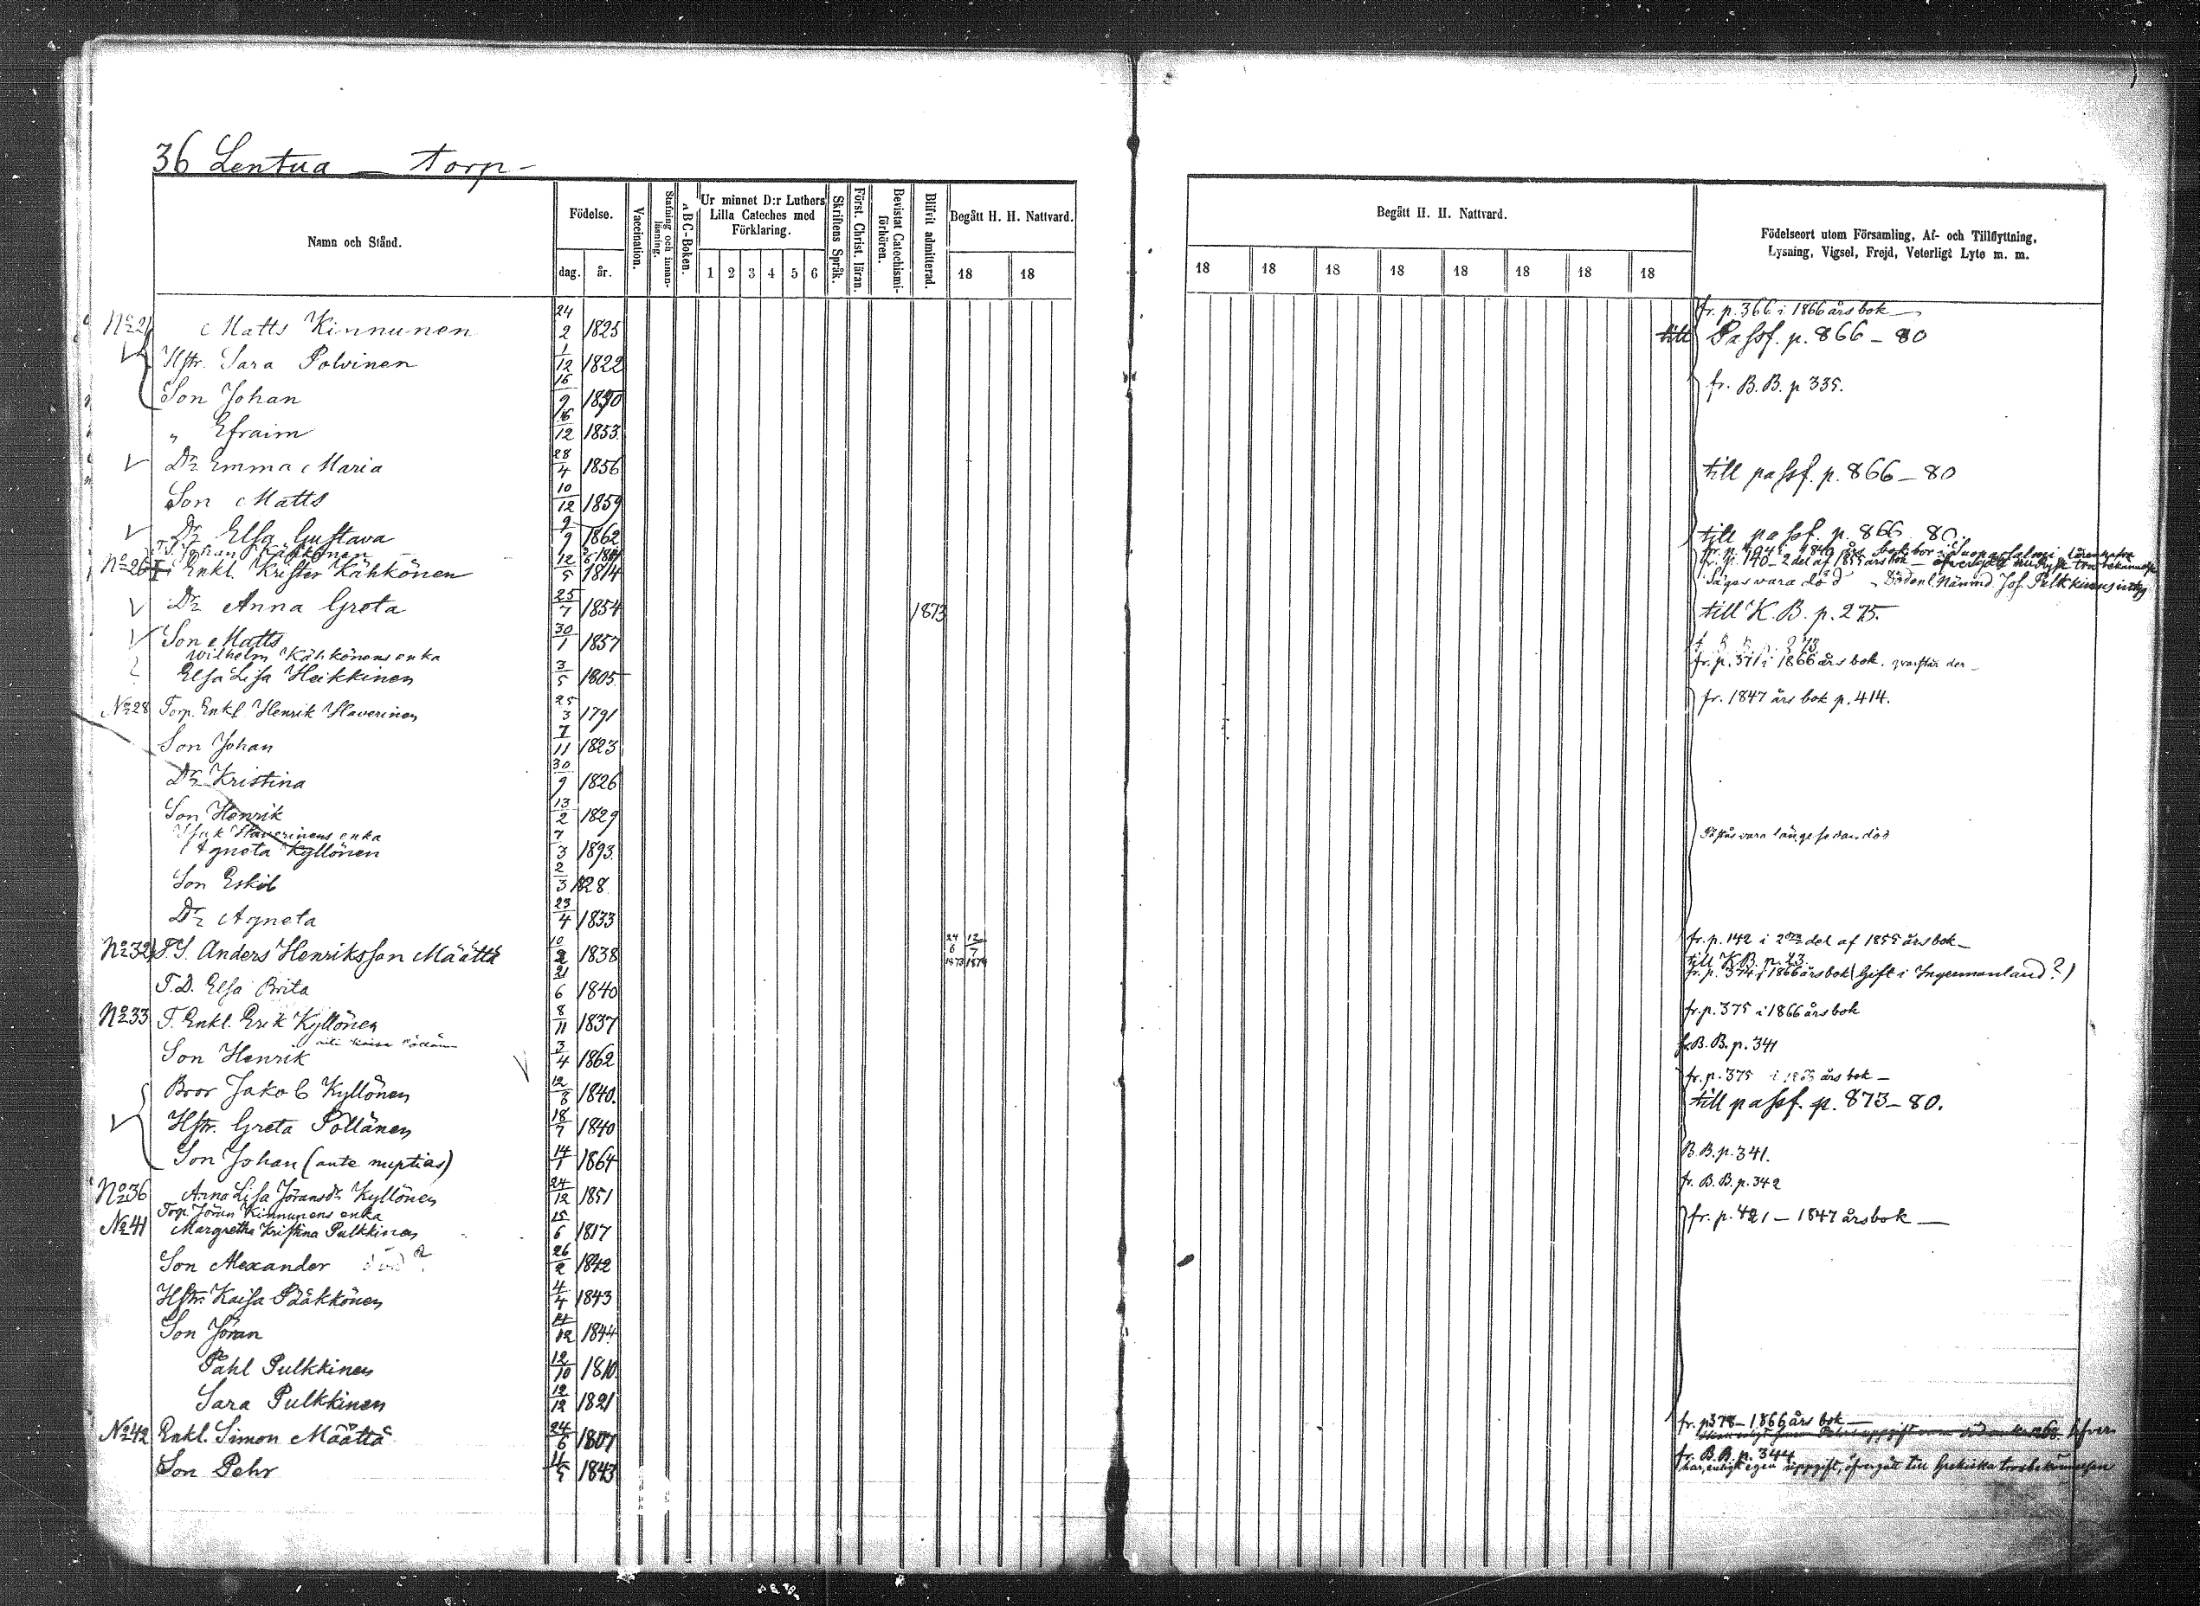 36 Lentua – torp –
Namn och Stånd.
Födelse.
dag. år.
Vaccination.
Stafning och innan-läsning.
ABC-Boken.
Ur minnet D:r Luthers Lilla Cateches med Förklaring.
1 2 3 4 5 6
Skriftens Språk.
Först. Christ. läran.
Bevistat Catechismi-förhören.
Blifvit admitterad.
Begått H. H. Nattvard.
18 18
Begått H. H. Nattvard.
18 18 18 18 18 18 18 18
Födelseort utom Församling, Af- och Tillflyttning,
Lysning, Vigsel, Frejd, Veterligt Lyte m. m.
fr. p. 366 i 1866 års bok –
No 21 Matts Kinnunen 24/2 1825 till Passf. p. 866 – 80
Hstr. Sara Polvinen 1/12 1822
Son Johan 16/9 1850 fr. B.B. p 335.
" Efraim 16/12 1853
Dr Emma Maria 28/4 1856 till passf. p. 866 – 80
Son Matts 10/12 1859
Dr Elsa Gustava 9/9 1862 till passf. p. 866 80
T.S. Johan Kähkönen
No 26 Enkl. Krister Kähkönen 12/5 1814 fr. p. 140 – 2 del af 1855 års bok –
Säges vara död
Dr Anna Greta 25/7 1854 1873 till K.B. p. 275.
Son Matts 30/1 1857
Wilhelm Kähkönens enka
Elsa Lisa Heikkinen 3/5 1805 fr. p. 371 i 1866 års bok.
No 28 Torp. Enkl Henrik Haverinen 25/3 1791 fr. 1847 års bok p. 414.
Son Johan 7/11 1823
Dr Kristina 30/9 1826
Son Henrik 13/2 1829
Isak Haverinens enka
Agneta Kyllönen 7/3 1893 vara länge sedan död
Son Eskil 2/3 1828
Dr Agneta 23/4 1833
No 32 T.S. Anders Henriksson Määttä 10/2 1838 24/6 1873 12/7 1874 fr. p. 142 i 2dra del af 1855 års bok –
till K.B. p. 23.
T.D. Elsa Brita 21/6 1840 fr. p. 374 i 1866 års bok (Gift i Ingermanland?)
No 33 T. Enkl. Erik Kyllönen 8/11 1837 fr. p. 375 i 1866 års bok
Son Henrik 3/4 1862 fr. B.B. p. 341
fr. p. 375 i 1866 års bok –
Bror Jakob Kyllönen 12/8 1840. till passf. p. 873 – 80.
Hstr. Greta Pöllänen 18/7 1840
Son Johan (ante nuptias) 14/1 1864 B.B. p. 341.
No 36 Anna Lisa Jöransdr Kyllönen 24/12 1851 fr. B.B. p. 342
Torp. Jöran Kinnunens enka
No 41 Margretha Kristina Pulkkinen 15/6 1817 fr. p. 421 – 1847 årsbok –
Son Alexander död? 26/2 1842
Hstr. Kaisa Pääkkönen 4/4 1843
Son Jöran 4/12 1844
Påhl Pulkkinen 12/10 1810.
Sara Pulkkinen 12/12 1821
No 42 Enkl. Simon Määttä 24/6 1807 fr. p 378 – 1866 års bok –
Son Pehr 4/5 1843 fr. B.B. p. 344
har, enligt egen uppgift, öfvergått till Grekiska trosbekännelsen